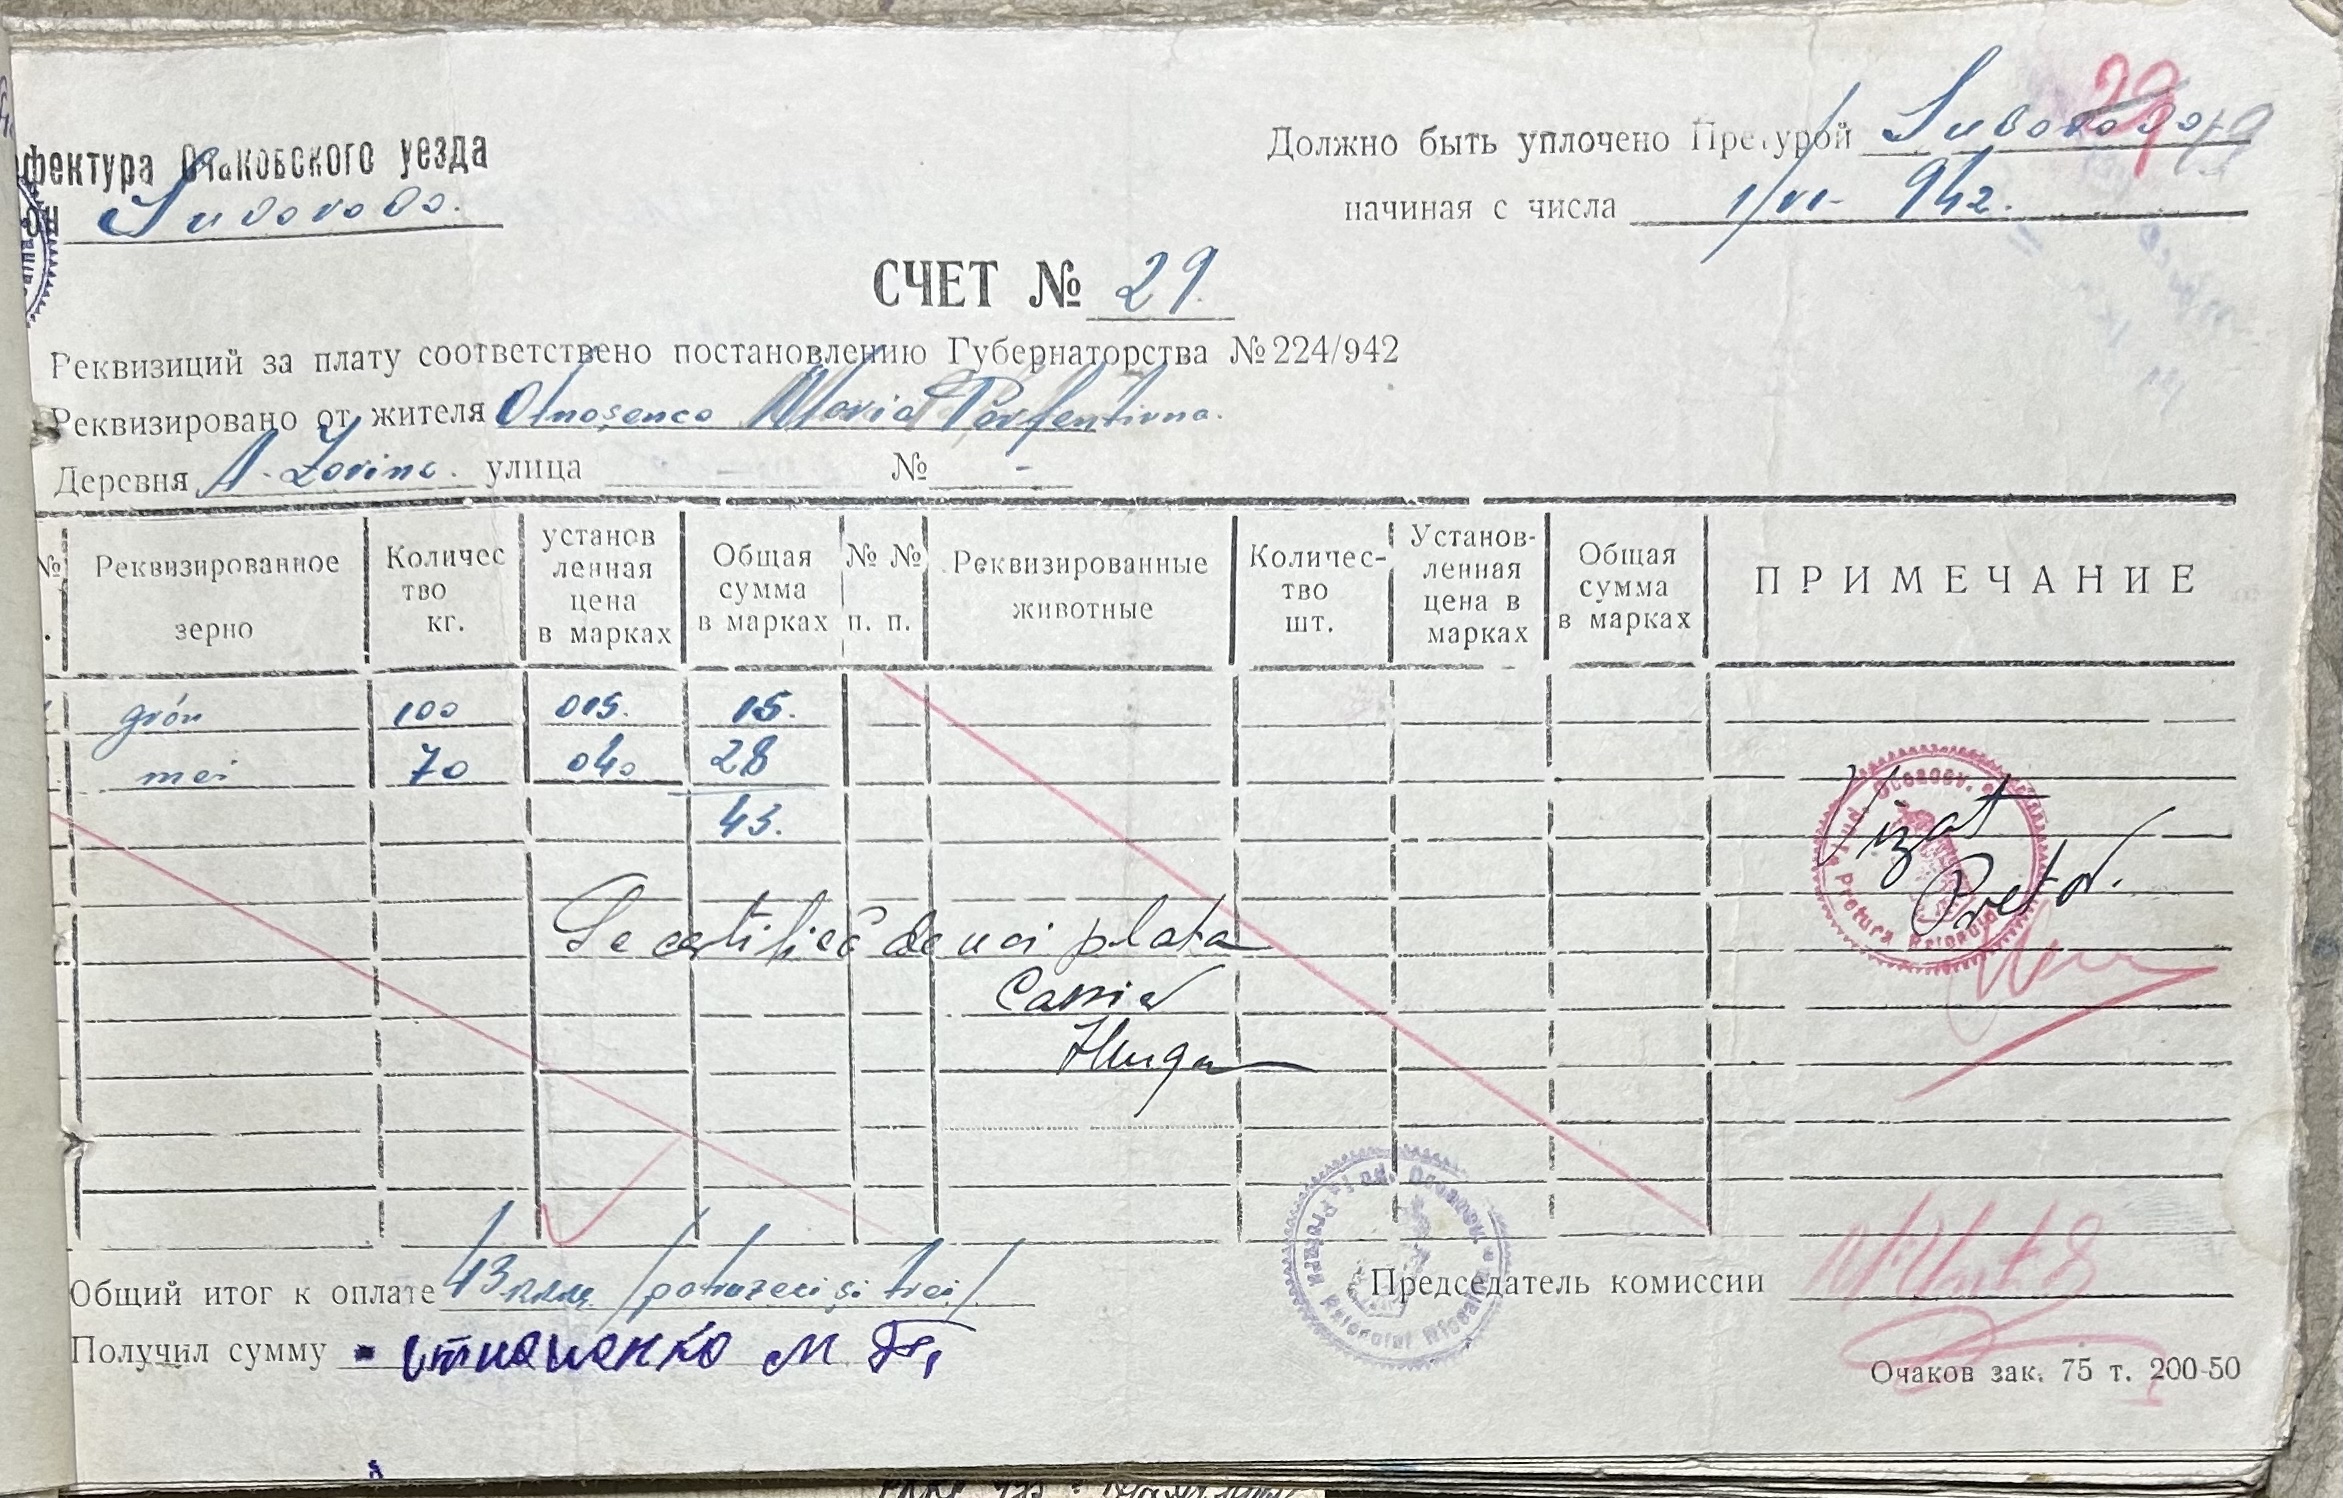 фектура Очаковского уезда
он Suvorovo.
Должно быть уплочено Претурой Suvorovo
29
начиная с числа 1/VI- 942.
СЧЕТ № 29
Реквизиций за плату соответствено постановлению Губернаторства №224/942
Реквизировано от жителя Otnoşenco Maria Parfentievna.
Деревня A. Zorina. улица - № -
№ Реквизированное зерно Количес тво кг. установ ленная цена в марках Общая сумма в марках № № п. п. Реквизированные животные Количес- тво шт. Установ- ленная цена в марках Общая сумма в марках ПРИМЕЧАНИЕ
grân 100 015. 15.
mei 70 040 28
43.
Vizat
Pretor.
Se certifică de noi plata
Cassier
Jud. Oceacov.
Pretura Raionului
Общий итог к оплате 43 /patruzeci și trei/
Председатель комиссии
Получил сумму - Отношенко М П,
Очаков зак. 75 т. 200-50